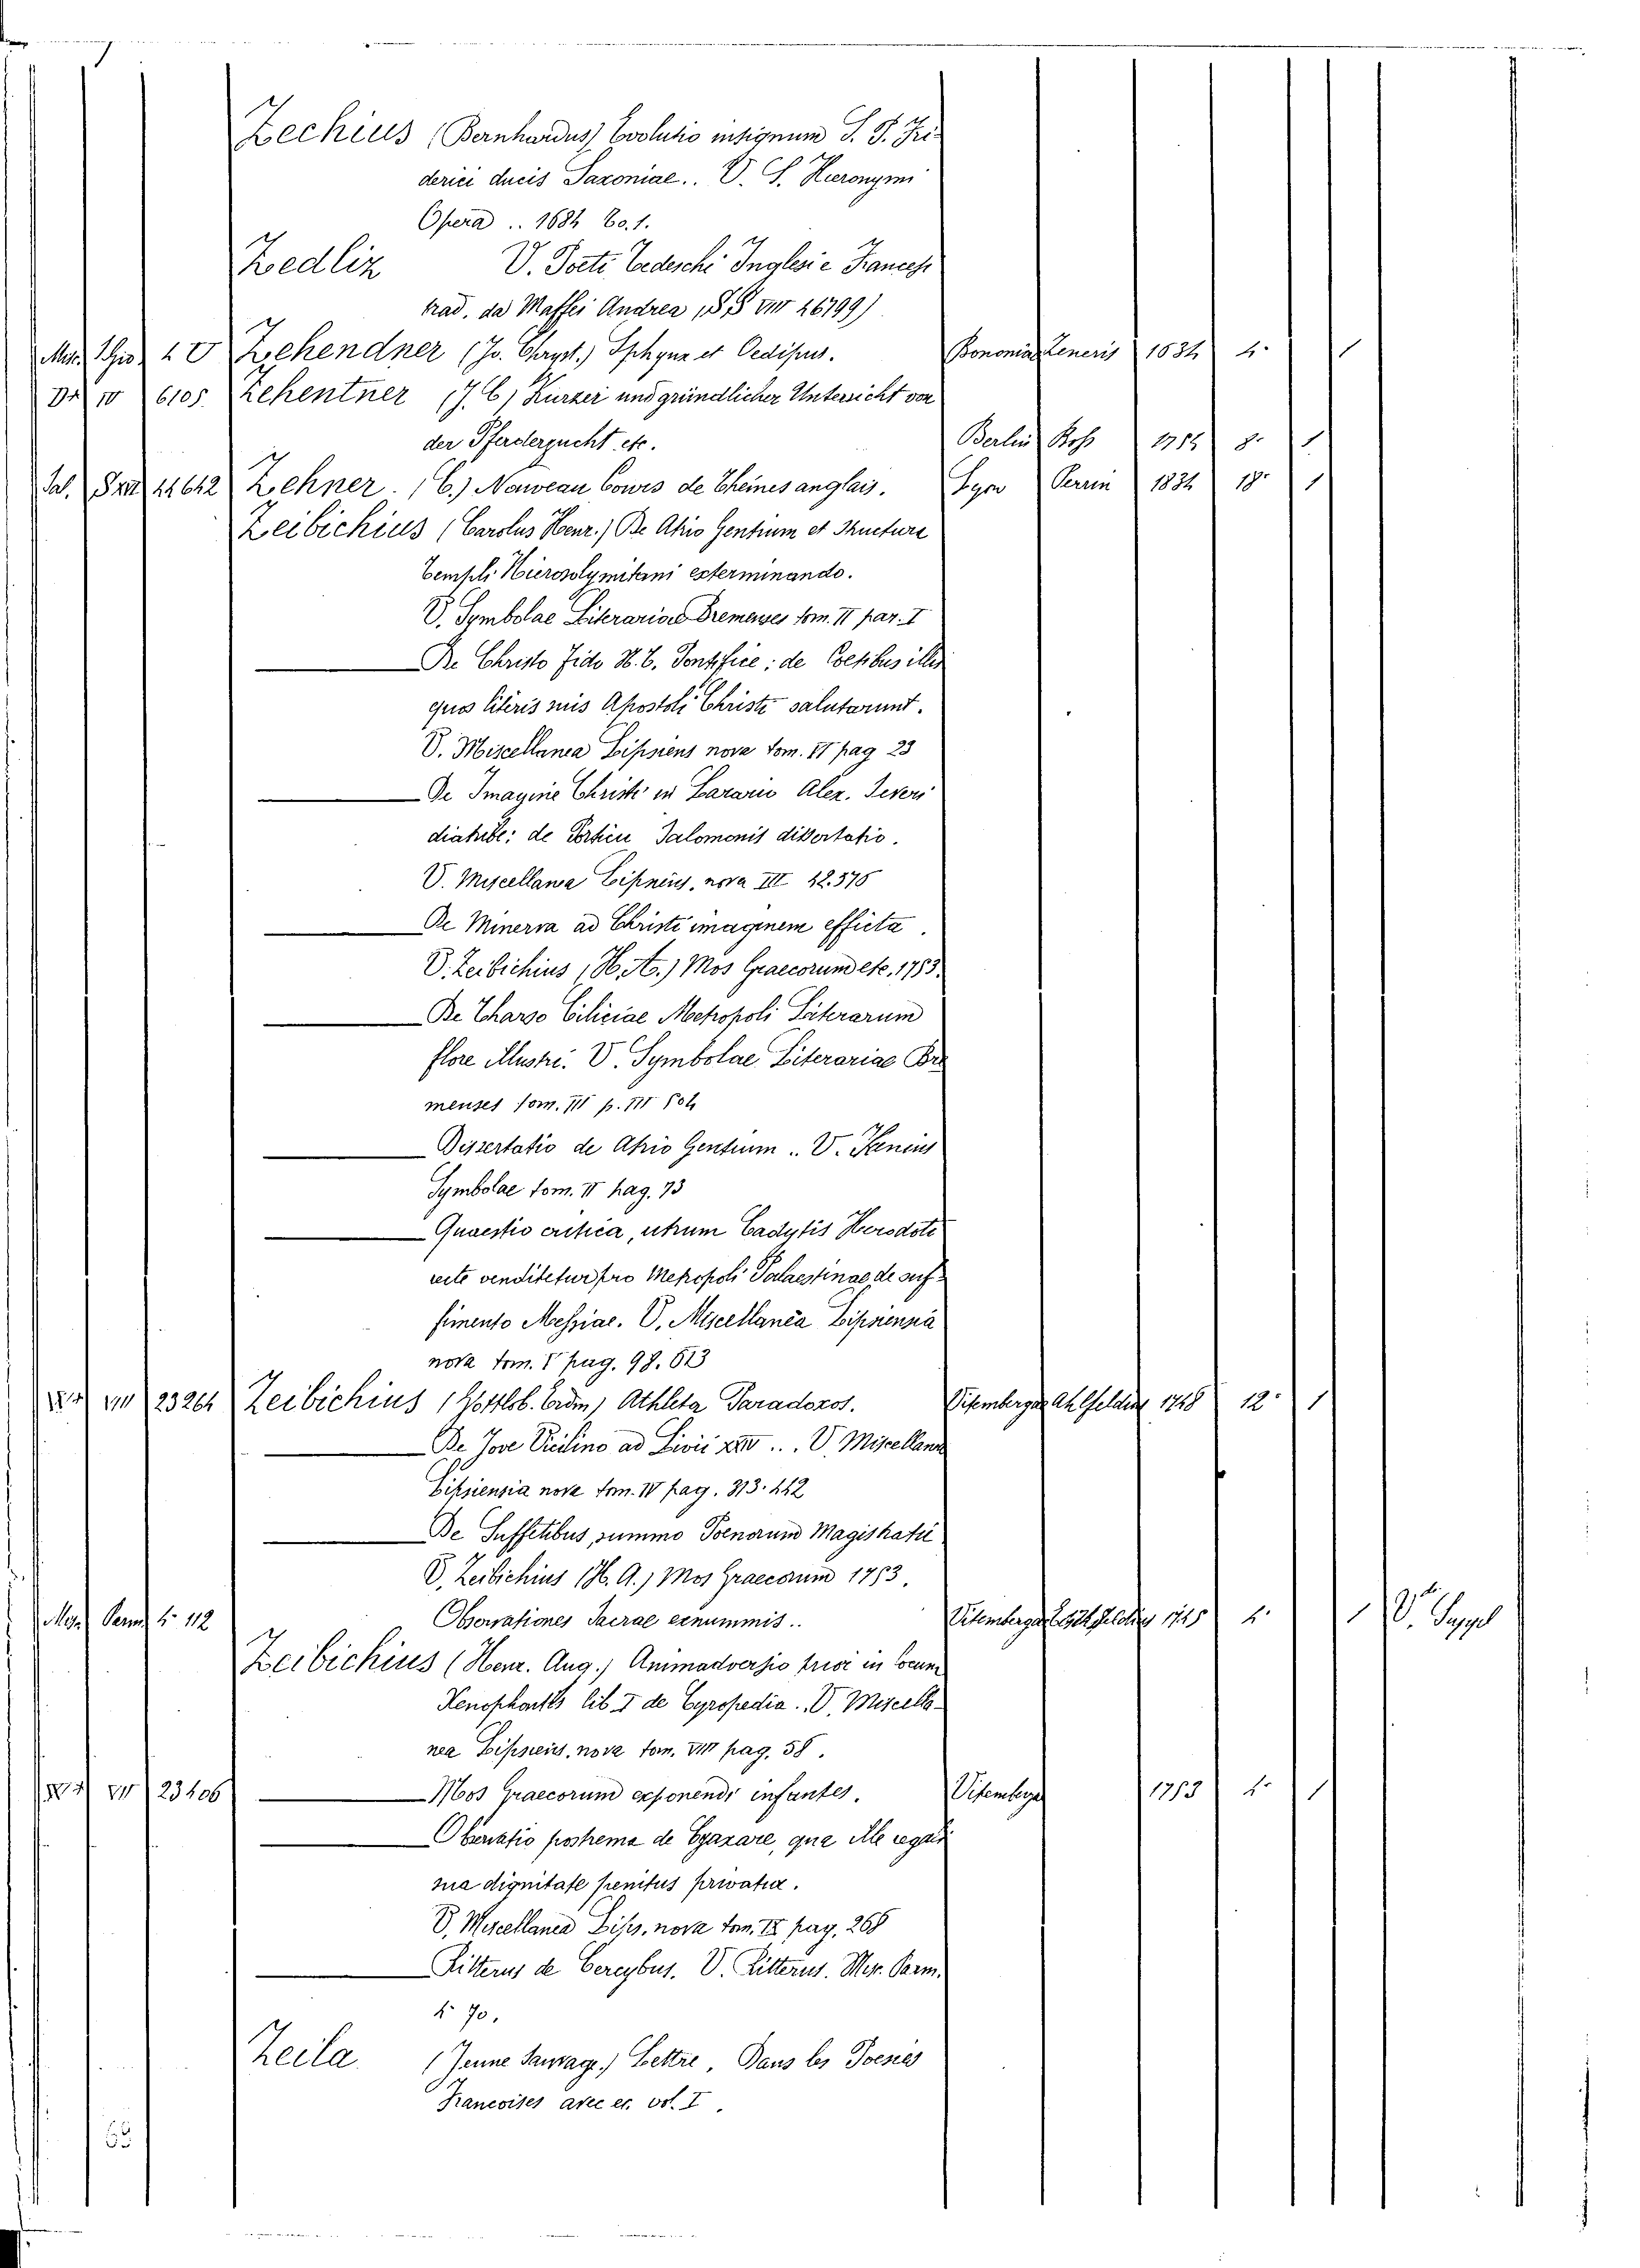 Zechius (Bernhardus) Evolutio insignum S. P. Fri-
derici ducis Saxoniae.. V. S. Hieronymi
Opera .. 1684 to. 1.
Zedliz V. Poeti Tedeschi Inglesi e Francesi
trad. da Maffei Andrea (SS VIII 26799)
Zehendner (Jo. Chryst.) Sphynx et Oedipus. Bononiae Zeneris 1634 4. 1
IV 6105 Zehentner (J. C) Kurzer und gründlicher Unterricht von
der Pferderzucht etc. Berlin 8. 1
Zehner. (C.) Nouveau Cours de Thèmes anglais. Lyon Perrin 1834 18. 1
Zeibichius (Carolus Henr.) De Atrio Gentium et Structura
Templi Hierosolymitani exterminando.
V. Symbolae Literariae Bremenses tom. II par. I
De Christo Fido N. T. Pontifice; de Coetibus illis
quos literis suis Apostoli Christi salutarunt.
V. Miscellanea Lipsiens nova tom. II pag 23
De Imagine Christi in Larario Alex. Severi
diatribe; de Porticu Salomonis dissertatio.
V. Miscellanea Lipsiens. nova III 42. 375
De Minerva ad Christi imaginem efficta.
V. Zeibichius (H. A.) Mos Graecorum etc. 1753.
De Tharso Ciliciae Metropoli Literarum
flore illustri. V. Symbolae Literariae Bre
menses tom. III p. III 504
Dissertatio de Atrio Gentium .. V.
Symbolae tom. II pag. 73
Quaestio critica, utrum Cadytis Herodoti
recte venditetur pro Metropoli Palaestinae, de suf-
fimento Messiae. V. Miscellanea Lipsiensia
nova tom. V pag. 98. 513
VII 23264 Zeibichius (Gottlob. Erdm) Athleta Paradoxos. Vitembergae Ahlfeldius 1748 12. 1
De Jove Vicilino ad Livii XXIV... V. Miscellanea
Lipsiensia nova tom. IV pag. 313. 442
De Suffetibus, summo Poenorum Magistratu
V. Zeibichius (H. A.) Mos Graecorum 1753.
Mss. Parm 4. 112 Observationes Sacrae ex nummis.. Vitembergae 1745 4. 1 V. Suppl
Zeibichius (Henr. Aug.) Animadversio prior in locum
Xenophontis lib I de Cyropedia. V. Miscella-
nea Lipsiens. nova tom. VIII pag. 58.
VII 23406 Mos Graecorum exponendi infantes. Vitembergae 1753 4. 1
Observatio postrema de Cyaxare, qua ille regali
sua dignitate penitus privatur.
V. Miscellanea Lips. nova tom. IX pag. 268
Ritterus de Cercybus. V. Ritterus. Mss. Parm.
4. 70.
Zeila (Jeune Sauvage.) Lettre. Dans les Poesies
Francoises avec et. vol. I.